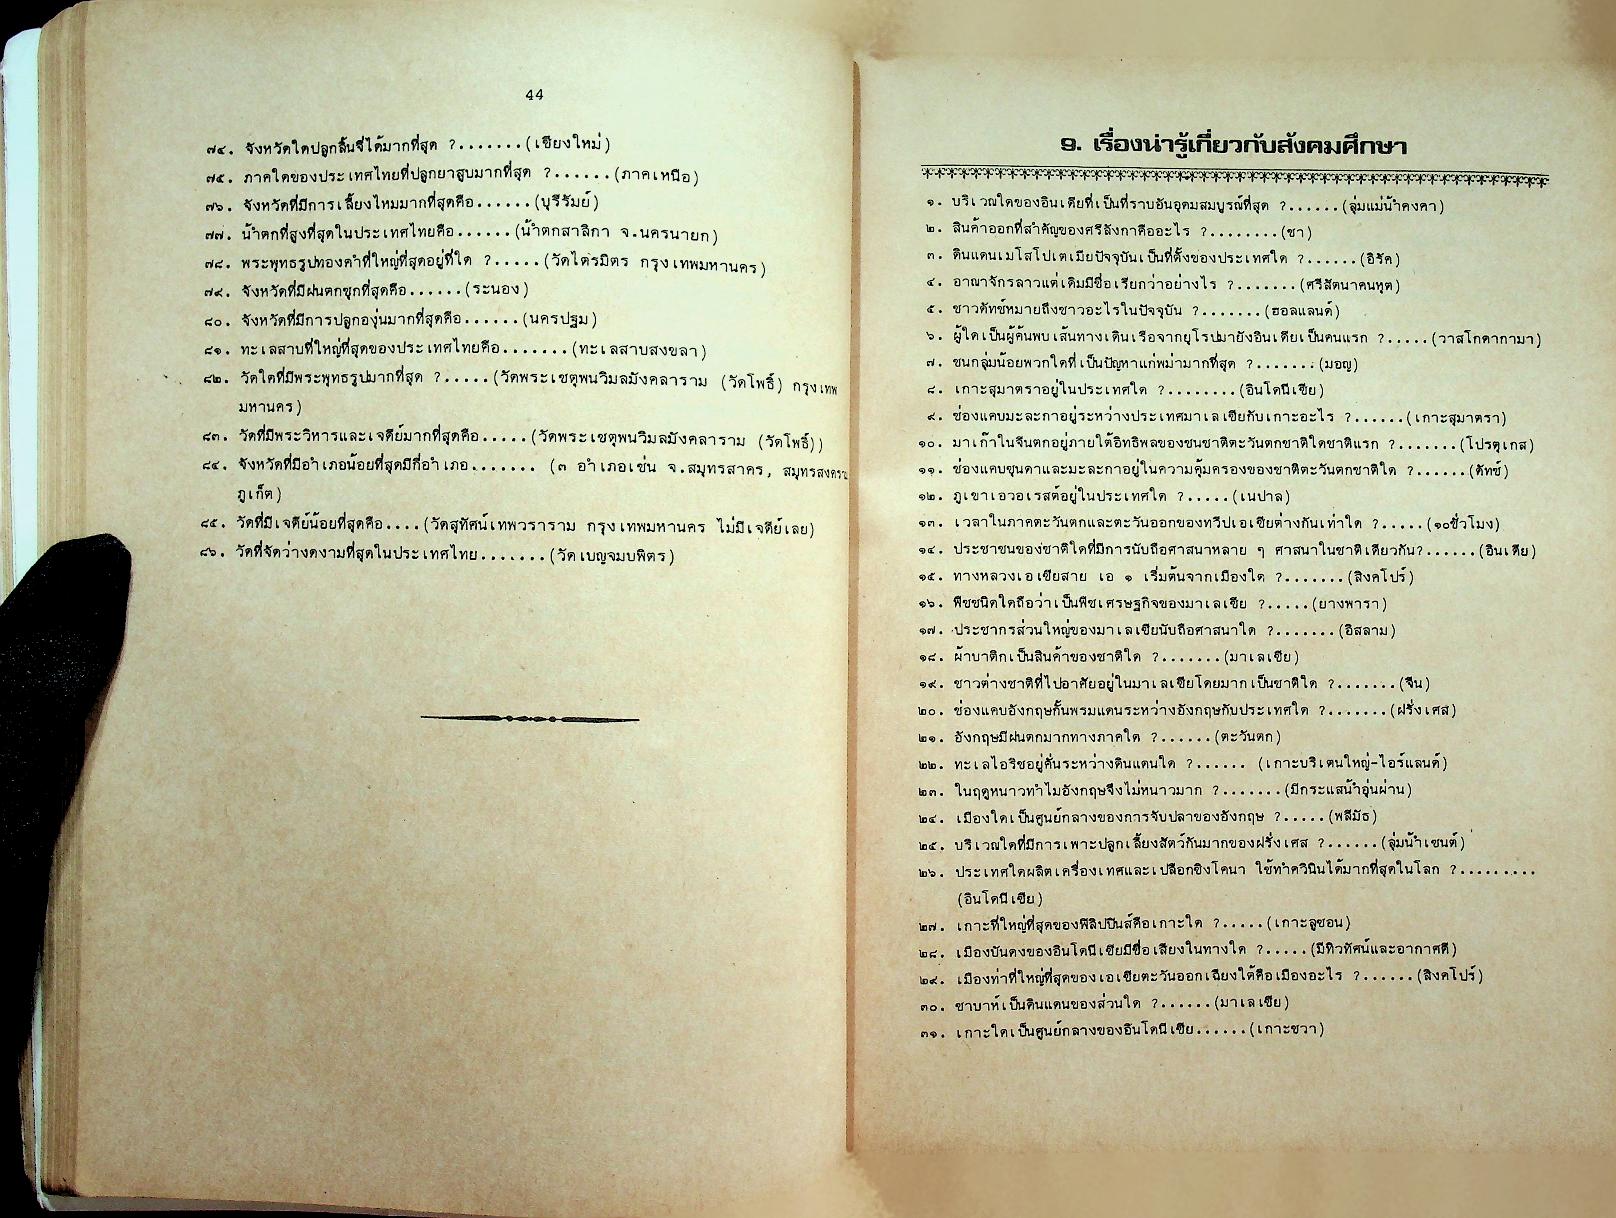 44
๗๔. จังหวัดใดปลูกลิ้นจี่ได้มากที่สุด ?.......(เชียงใหม่)
๗๕. ภาคใดของประเทศไทยที่ปลูกยาสูบมากที่สุด ?......(ภาคเหนือ)
๗๖. จังหวัดที่มีการเลี้ยงไหมมากที่สุดคือ......(บุรีรัมย์)
๗๗. น้ำตกที่สูงที่สุดในประเทศไทยคือ......(น้ำตกสาลิกา จ.นครนายก)
๗๘. พระพุทธรูปทองคำที่ใหญ่ที่สุดอยู่ที่ใด ?.....(วัดไตรมิตร กรุงเทพมหานคร)
๗๙. จังหวัดที่มีฝนตกชุกที่สุดคือ......(ระนอง)
๘๐. จังหวัดที่มีการปลูกองุ่นมากที่สุดคือ......(นครปฐม)
๘๑. ทะเลสาบที่ใหญ่ที่สุดของประเทศไทยคือ.......(ทะเลสาบสงขลา)
๘๒. วัดใดที่มีพระพุทธรูปมากที่สุด ?.....(วัดพระเชตุพนวิมลมังคลาราม (วัดโพธิ์) กรุงเทพ
มหานคร)
๘๓. วัดที่มีพระวิหารและเจดีย์มากที่สุดคือ.....(วัดพระเชตุพนวิมลมังคลาราม (วัดโพธิ์))
๘๔. จังหวัดที่มีอำเภอน้อยที่สุดมีกี่อำเภอ....... (๓ อำเภอเช่น จ.สมุทรสาคร, สมุทรสงคราม
ภูเก็ต)
๘๕. วัดที่มีเจดีย์น้อยที่สุดคือ....(วัดสุทัศน์เทพวราราม กรุงเทพมหานคร ไม่มีเจดีย์เลย)
๘๖. วัดที่จัดว่างดงามที่สุดในประเทศไทย.......(วัดเบญจมบพิตร)
๑. เรื่องน่ารู้เกี่ยวกับสังคมศึกษา
๑. บริเวณใดของอินเดียที่เป็นที่ราบอันอุดมสมบูรณ์ที่สุด ?......(ลุ่มแม่น้ำคงคา)
๒. สินค้าออกที่สำคัญของศรีลังกาคืออะไร ?........(ชา)
๓. ดินแดนเมโสโปเตเมียปัจจุบันเป็นที่ตั้งของประเทศใด ?......(อิรัค)
๔. อาณาจักรลาวแต่เดิมมีชื่อเรียกว่าอย่างไร ?.......(ศรีสัตนาคนหุต)
๕. ชาวดัทช์หมายถึงชาวอะไรในปัจจุบัน ?.......(ฮอลแลนด์)
๖. ผู้ใดเป็นผู้ค้นพบเส้นทางเดินเรือจากยุโรปมายังอินเดียเป็นคนแรก ?.....(วาสโกดากามา)
๗. ชนกลุ่มน้อยพวกใดที่เป็นปัญหาแก่พม่ามากที่สุด ?.......(มอญ)
๘. เกาะสุมาตราอยู่ในประเทศใด ?........(อินโดนีเซีย)
๙. ช่องแคบมะละกาอยู่ระหว่างประเทศมาเลเซียกับเกาะอะไร ?......(เกาะสุมาตรา)
๑๐. มาเก๊าในจีนตกอยู่ภายใต้อิทธิพลของชนชาติตะวันตกชาติใดชาติแรก ?.......(โปรตุเกส)
๑๑. ช่องแคบซุนดาและมะละกาอยู่ในความคุ้มครองของชาติตะวันตกชาติใด ?......(ดัทช์)
๑๒. ภูเขาเอวอเรสต์อยู่ในประเทศใด ?.....(เนปาล)
๑๓. เวลาในภาคตะวันตกและตะวันออกของทวีปเอเซียต่างกันเท่าใด ?.....(๑๐ชั่วโมง)
๑๔. ประชาชนของชาติใดที่มีการนับถือศาสนาหลาย ๆ ศาสนาในชาติเดียวกัน?......(อินเดีย)
๑๕. ทางหลวงเอเซียสาย เอ ๑ เริ่มต้นจากเมืองใด ?.......(สิงคโปร์)
๑๖. พืชชนิดใดถือว่าเป็นพืชเศรษฐกิจของมาเลเซีย ?.....(ยางพารา)
๑๗. ประชากรส่วนใหญ่ของมาเลเซียนับถือศาสนาใด ?.......(อิสลาม)
๑๘. ผ้าบาติกเป็นสินค้าของชาติใด ?.......(มาเลเซีย)
๑๙. ชาวต่างชาติที่ไปอาศัยอยู่ในมาเลเซียโดยมากเป็นชาติใด ?.......(จีน)
๒๐. ช่องแคบอังกฤษกั้นพรมแดนระหว่างอังกฤษกับประเทศใด ?.......(ฝรั่งเศส)
๒๑. อังกฤษมีฝนตกมากทางภาคใด ?......(ตะวันตก)
๒๒. ทะเลไอริชอยู่คั่นระหว่างดินแดนใด ?...... (เกาะบริเตนใหญ่-ไอร์แลนด์)
๒๓. ในฤดูหนาวทำไมอังกฤษจึงไม่หนาวมาก ?.......(มีกระแสน้ำอุ่นผ่าน)
๒๔. เมืองใดเป็นศูนย์กลางของการจับปลาของอังกฤษ ?.....(พลีมัธ)
๒๕. บริเวณใดที่มีการเพาะปลูกเลี้ยงสัตว์กันมากของฝรั่งเศส ?......(ลุ่มน้ำเซนต์)
๒๖. ประเทศใดผลิตเครื่องเทศและเปลือกซิงโคนา ใช้ทำควินินได้มากที่สุดในโลก ?.........
(อินโดนีเซีย)
๒๗. เกาะที่ใหญ่ที่สุดของฟิลิปปินส์คือเกาะใด ?.....(เกาะลูซอน)
๒๘. เมืองบันดงของอินโดนีเซียมีชื่อเสียงในทางใด ?.....(มีทิวทัศน์และอากาศดี)
๒๙. เมืองท่าที่ใหญ่ที่สุดของเอเซียตะวันออกเฉียงใต้คือเมืองอะไร ?......(สิงคโปร์)
๓๐. ซาบาห์เป็นดินแดนของส่วนใด ?......(มาเลเซีย)
๓๑. เกาะใดเป็นศูนย์กลางของอินโดนีเซีย......(เกาะชวา)